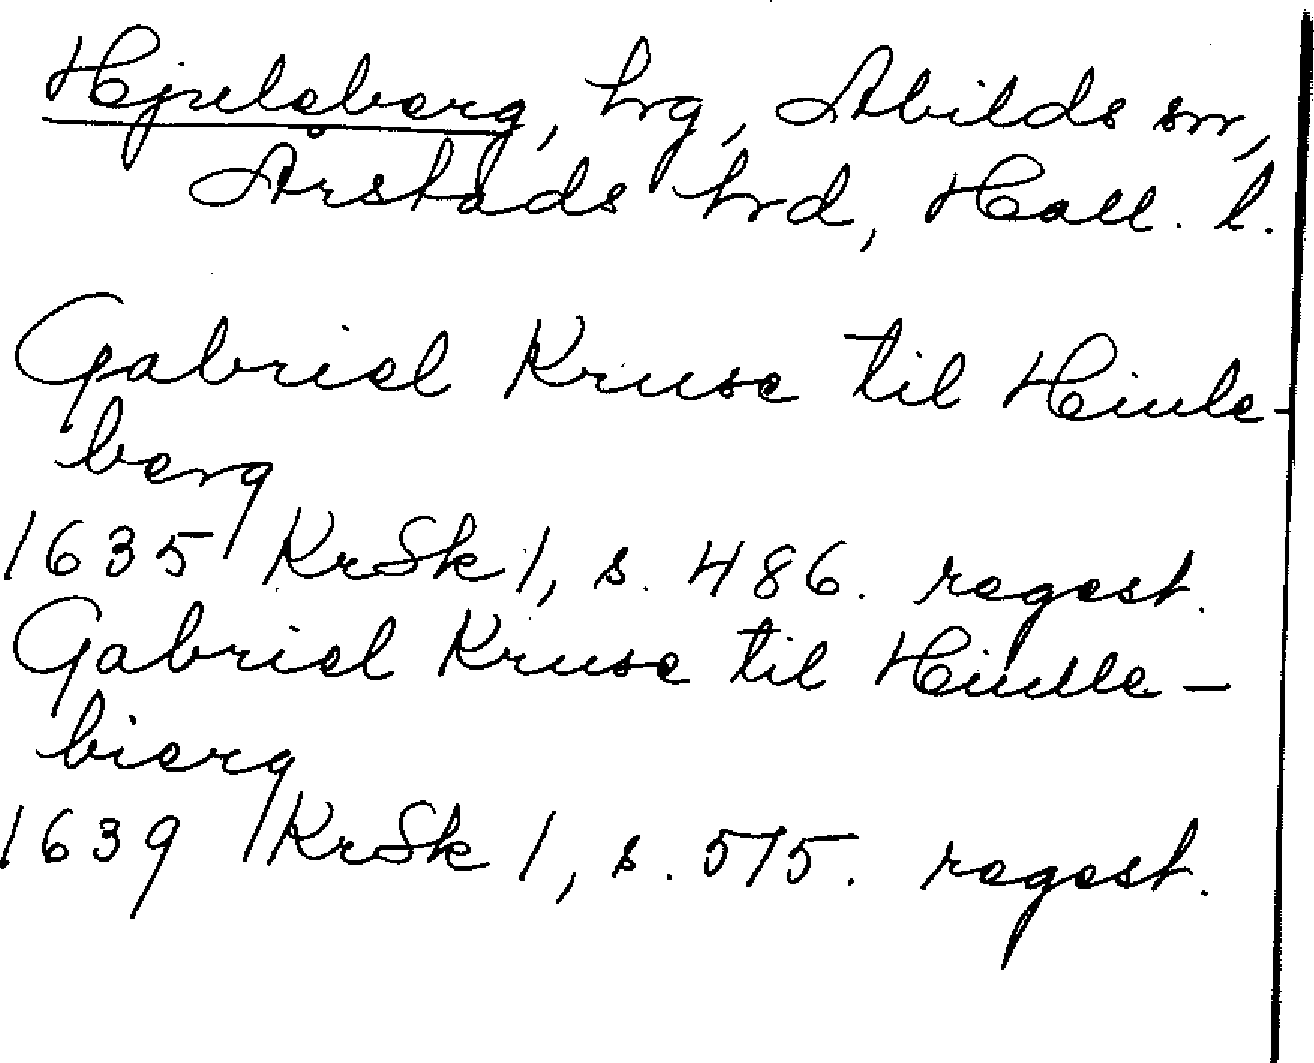 Hjuleberg, hrg, Abilds sn,
Årstads hrd, Hall. l.
Gabriel Kruse til Hiule-
berg
1635 KrSk 1, s. 486. regest.
Gabriel Kruse til Hiulle-
bierg
1639 KrSk 1, s. 575. regest.